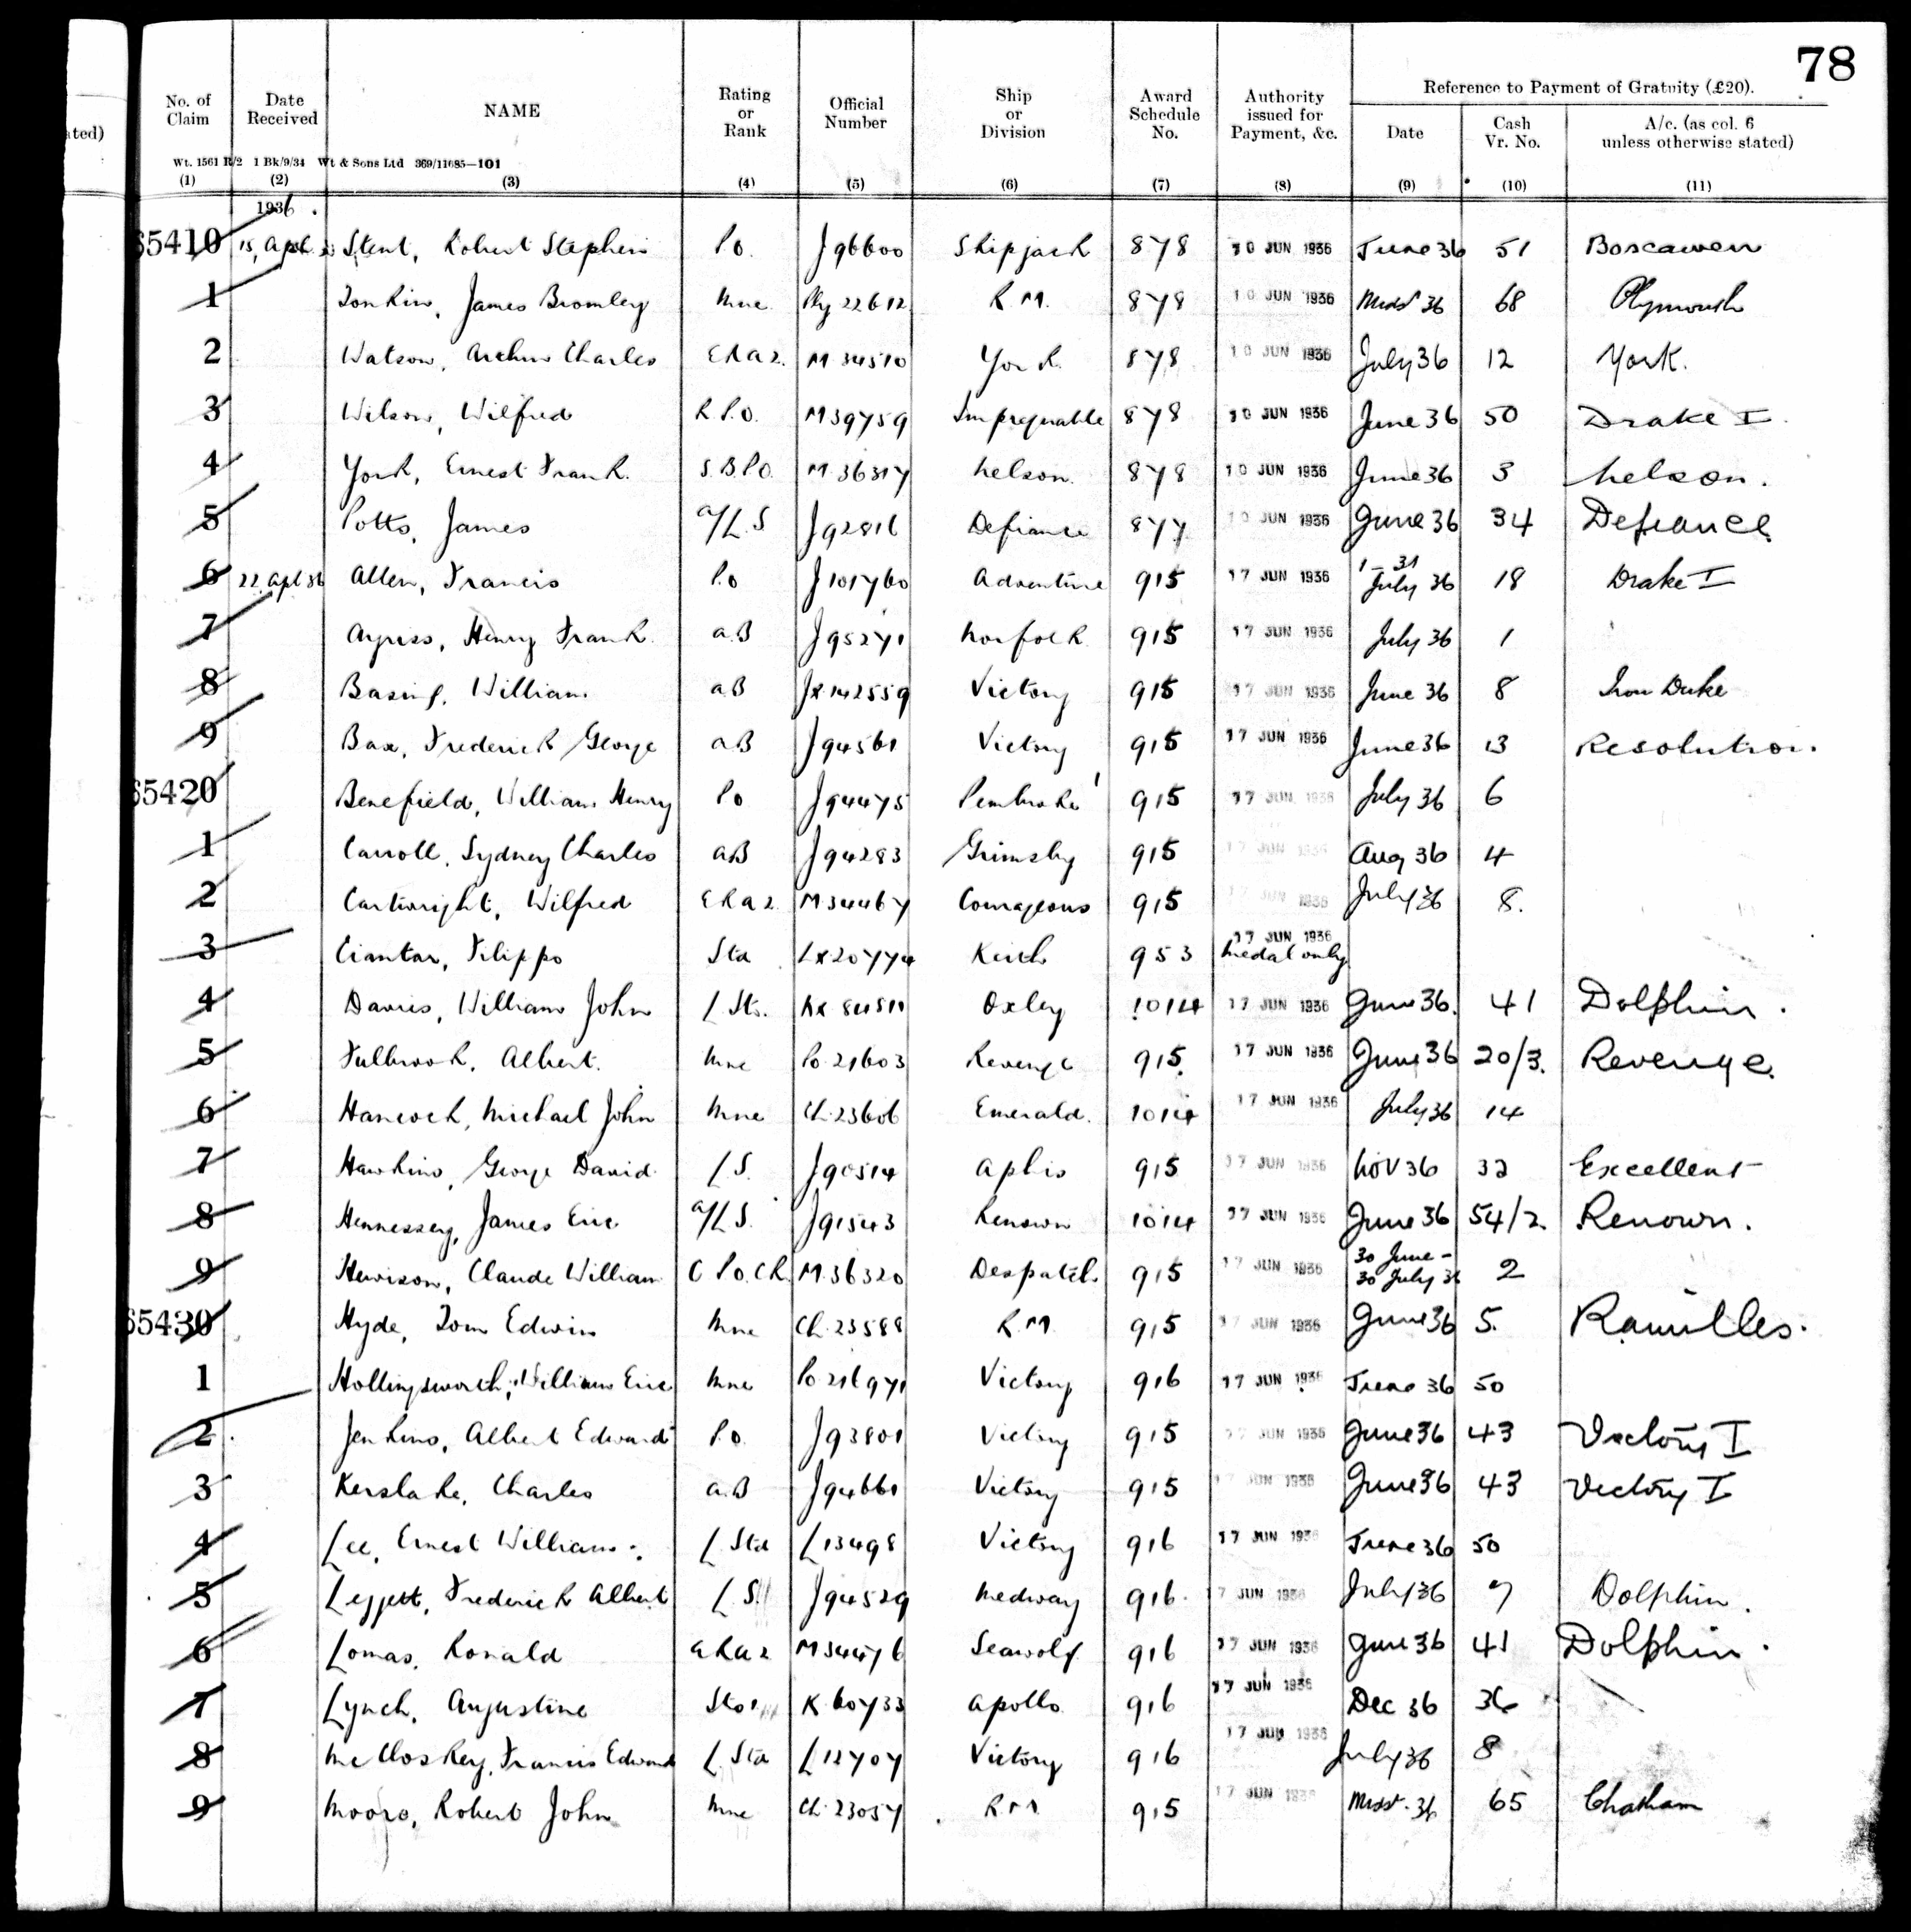 78
ated)
No. of Claim | Date Received | NAME | Rating or Rank | Official Number | Ship or Division | Award Schedule No. | Authority issued for Payment, &c. | Reference to Payment of Gratuity (£20).
Date | Cash Vr. No. | A/c. (as col. 6 unless otherwise stated)
Wt. 1561 R/2 1 Bk/9/34 Wt & Sons Ltd 369/11685—101
(1) (2) (3) (4) (5) (6) (7) (8) (9) (10) (11)
1936
65410 15 Apl Stent, Robert Stephen P.O. J96600 Skipjack 878 10 JUN 1936 June 36 51 Boscawen
1 Tonkin, James Bromley Mne Ply 22612 R.M. 878 10 JUN 1936 Midst 36 68 Plymouth
2 Watson, Arthur Charles ERA 2. M 34510 York. 878 10 JUN 1936 July 36 12 York.
3 Wilson, Wilfred R.P.O. M39759 Impregnable 878 10 JUN 1936 June 36 50 Drake I
4 York, Ernest Frank. S.B.P.O. M.36317 Nelson. 878 10 JUN 1936 June 36 3 Nelson.
5 Potts, James A/L.S J92816 Defiance 877 10 JUN 1936 June 36 34 Defiance
6 22 Apl 36 Allen, Francis P.O J101760 Adventure 915 17 JUN 1936 1-31 July 36 18 Drake I
7 Argiss, Henry Frank. A.B J95271 Norfolk 915 17 JUN 1936 July 36 1
8 Basing, William AB JX142559 Victory 915 17 JUN 1936 June 36 8 Iron Duke
9 Bax, Frederick George AB J94561 Victory 915 17 JUN 1936 June 36 13 Resolution.
65420 Benefield, William Henry PO J94475 Pembroke 915 17 JUN 1936 July 36 6
1 Carroll, Sydney Charles AB J94283 Grimsby 915 17 JUN 1936 Aug 36 4
2 Cartwright, Wilfred ERA 2 M34467 Courageous 915 17 JUN 1936 July 36 8.
3 Ciantar, Filippo Std LX20774 Keith 953 17 JUN 1936 Medal only
4 Davies, William John L Sto. KX 84511 Oxley 1014 17 JUN 1936 June 36. 41 Dolphin.
5 Fulbrook, Albert. Mne Po.21603 Revenge 915. 17 JUN 1936 June 36 20/3. Revenge.
6 Hancock, Michael John Mne Ch.23606 Emerald. 1014 17 JUN 1936 July 36 14
7 Hawkins, George David L.S. J90514 Aphis 915 17 JUN 1936 Nov 36 32 Excellent
8 Hennessey, James Eric A/L.S. J91543 Renown 1014 17 JUN 1936 June 36 54/2. Renown.
9 Hewison, Claude William C.P.O. Ck. M.36320 Despatch. 915 17 JUN 1936 30 June - 30 July 36 2
65430 Hyde, Tom Edwin Mne Ch.23588 R.M. 915 17 JUN 1936 June 36 5. Ramillies.
1 Hollingsworth, William Eric Mne Po.21697 Victory 916 17 JUN 1936 June 36 50
2 Jenkins, Albert Edward P.O. J93801 Victory 915 17 JUN 1936 June 36 43 Victory I
3 Kerslake, Charles A.B J94661 Victory 915 17 JUN 1936 June 36 43 Victory I
4 Lee, Ernest William. L. Std L13498 Victory 916 17 JUN 1936 June 36 50
5 Leggett, Frederick Albert L.S. J94529 Medway 916. 17 JUN 1936 July 36 7 Dolphin.
6 Lomas, Ronald ERA 2 M34476 Seawolf 916 17 JUN 1936 June 36 41 Dolphin.
7 Lynch, Augustine Sto 1 K60733 Apollo 916 17 JUN 1936 Dec 36 36
8 McCloskey, Francis Edward L. Std L12707 Victory 916 17 JUN 1936 July 36 8
9 Moore, Robert John Mne Ch.23057 R.M. 915 17 JUN 1936 Midst. 36 65 Chatham